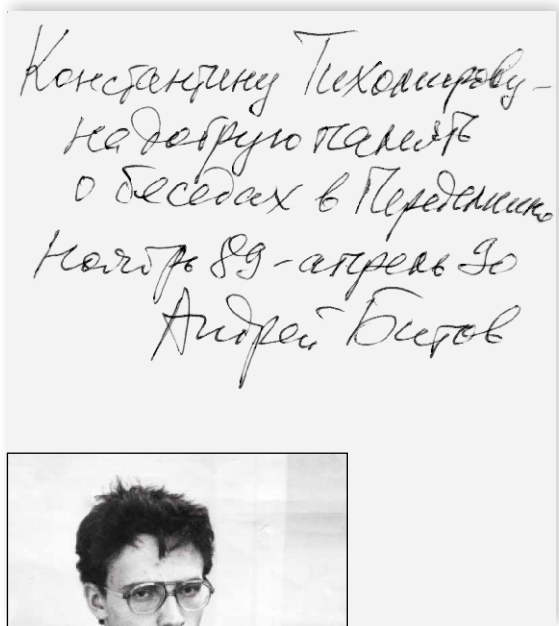 Константину Тихомирову –
на добрую память
о беседах в Переделкино
Ноябрь 89 – апрель 90
Андрей Битов